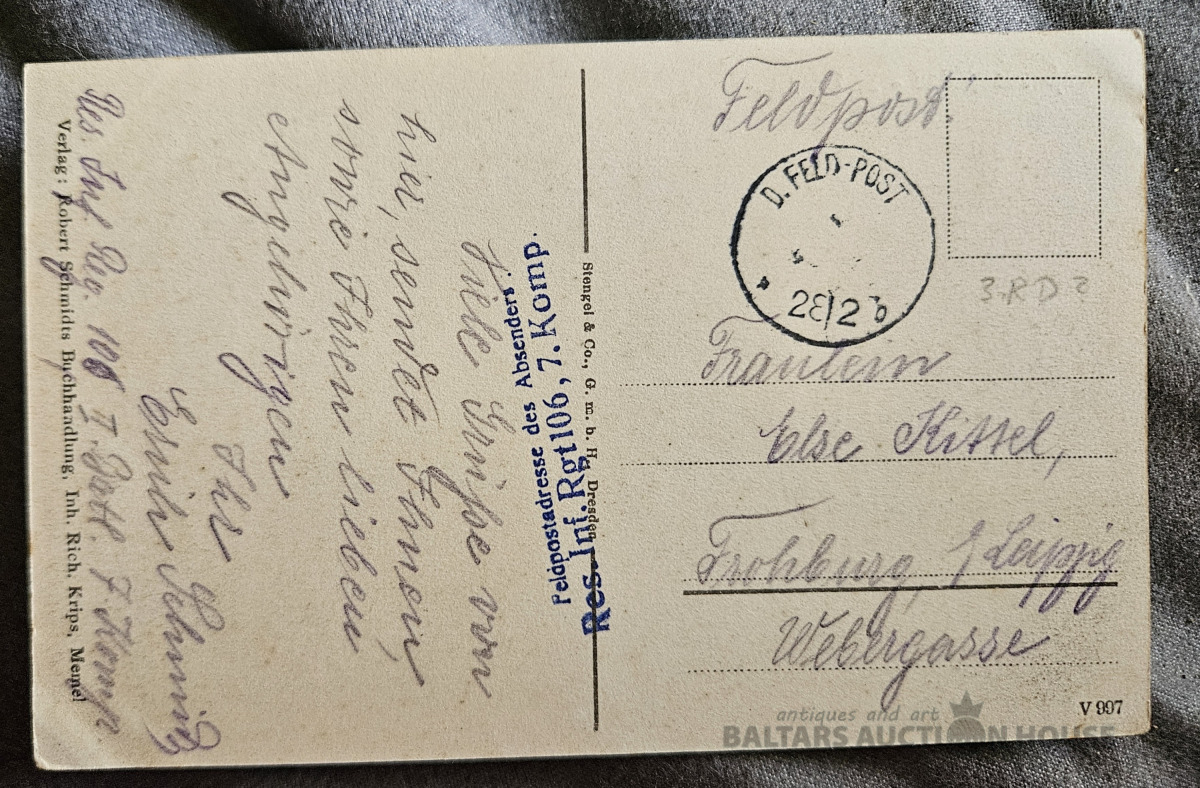 Feldpost.
D. FELD-POST
28/2
3.R D 2
Fräulein
Else Kittel,
Frohburg, b/Leipzig
Webergasse
V 997
Stengel & Co., G. m. b. H., Dresden
Feldpostadresse des Absenders:
Res. Inf. Rgt 106, 7. Komp.
Viele Grüße von
hier, sendet Ihnen,
sowie Ihren lieben
Angehörigen
Ihr
Erwin
Res. Inf. Reg. 106 II. Batl. 7. Komp.
Verlag: Robert Schmidts Buchhandlung, Inh. Rich. Krips, Memel
antiques and art
BALTARS AUCTION HOUSE